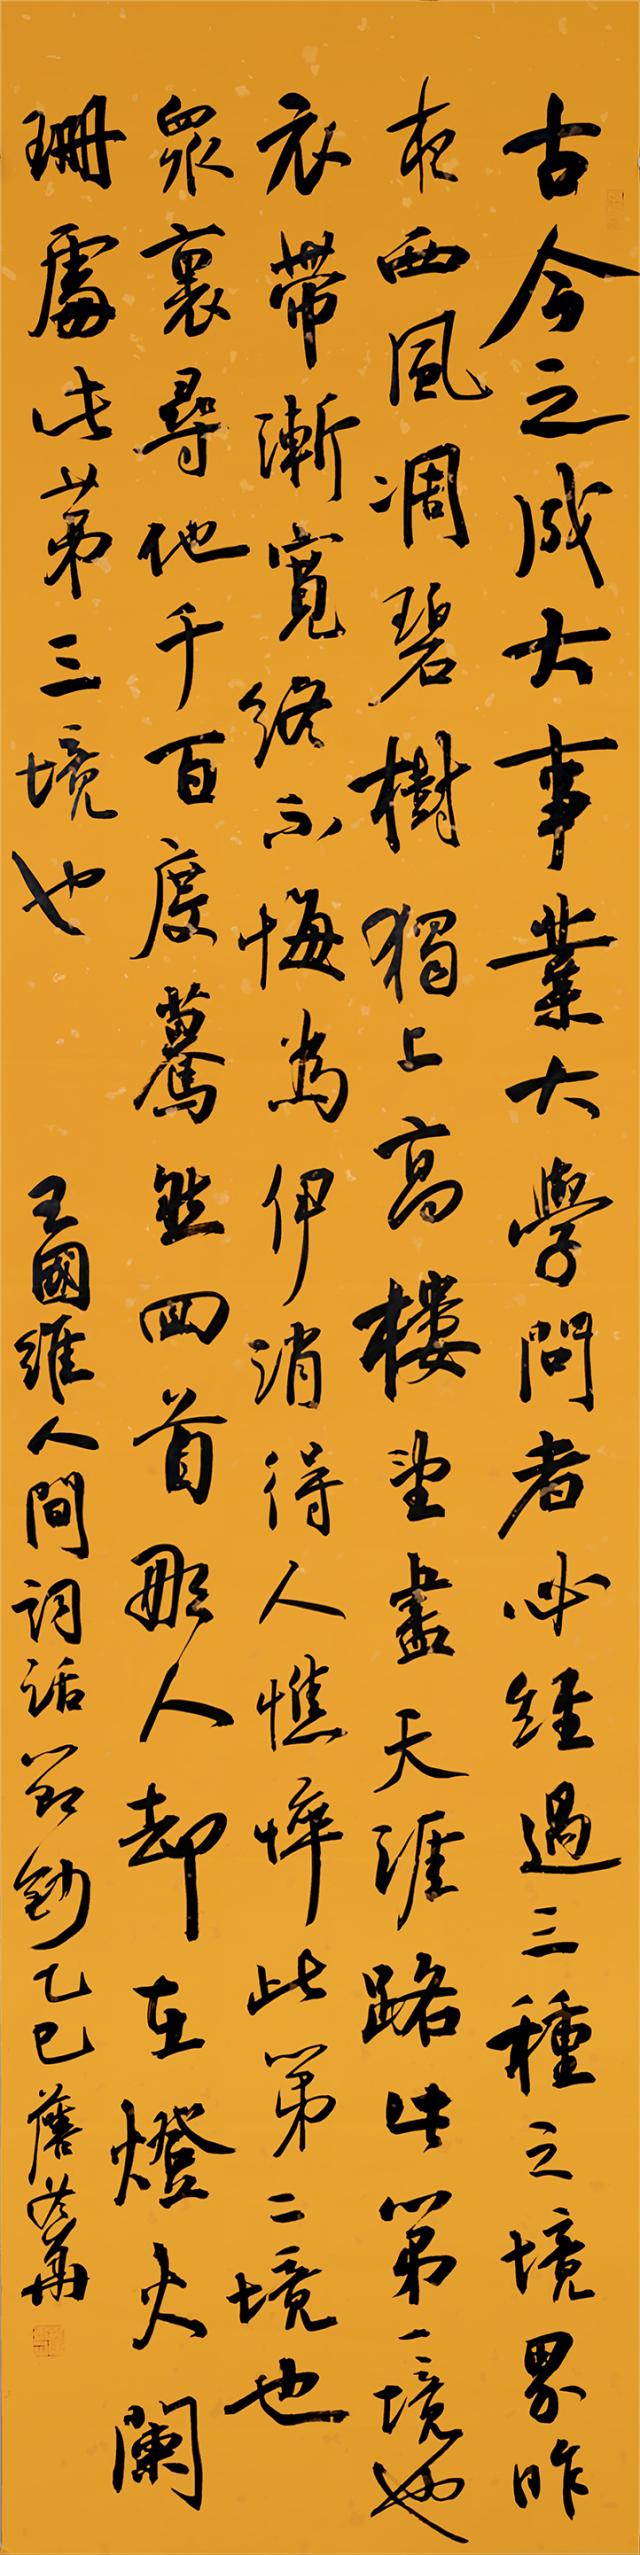 古今之成大事業大學問者必經過三種之境界昨
夜西風凋碧樹獨上高樓望盡天涯路此第一境也
衣帶漸寬終不悔為伊消得人憔悴此第二境也
眾裏尋他千百度驀然回首那人却在燈火闌
珊處此第三境也 王國維人間詞話節鈔乙巳